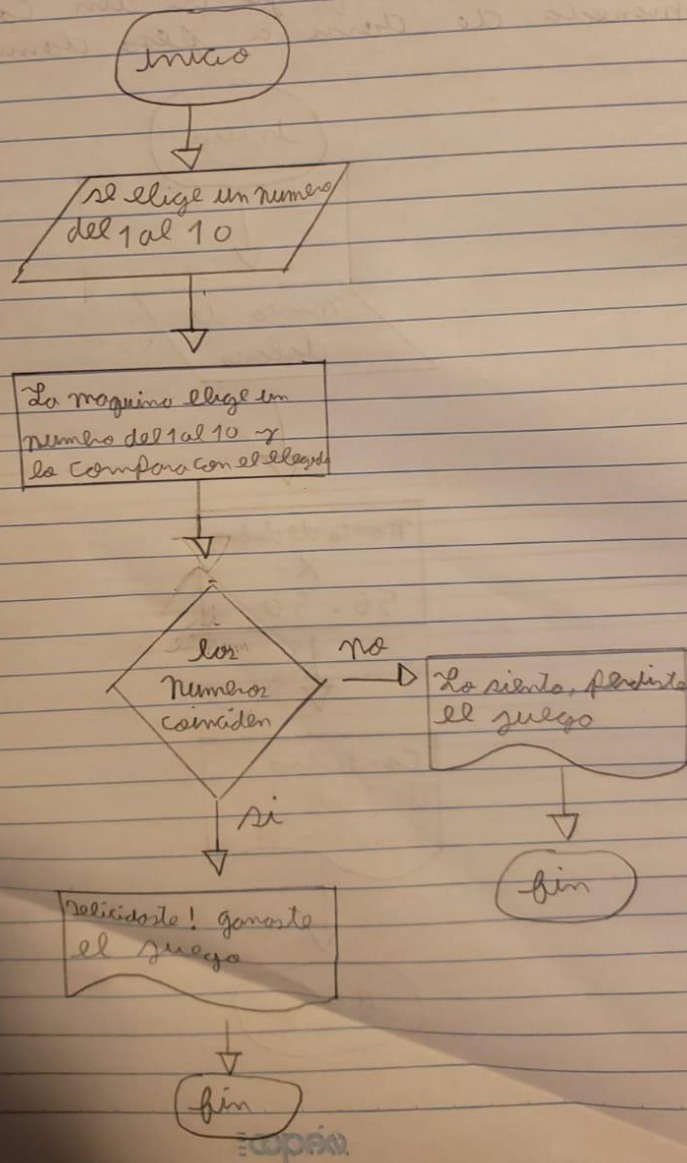 inicio
se elige un numero
del 1 al 10
La maquina elige un
numero del 1 al 10 y
lo compara con el elegido
los
numeros
coinciden
no
Lo siento, perdiste
el juego
si
fin
ganaste
el juego
fin